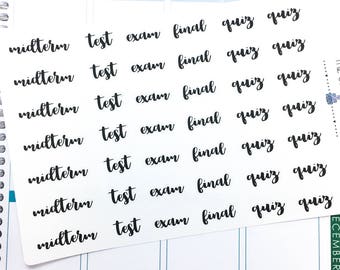 midterm test exam final quiz quiz
midterm test exam final quiz quiz
midterm test exam final quiz quiz
midterm test exam final quiz quiz
midterm test exam final quiz quiz
midterm test exam final quiz quiz
midterm test exam final quiz quiz
ECEMBER